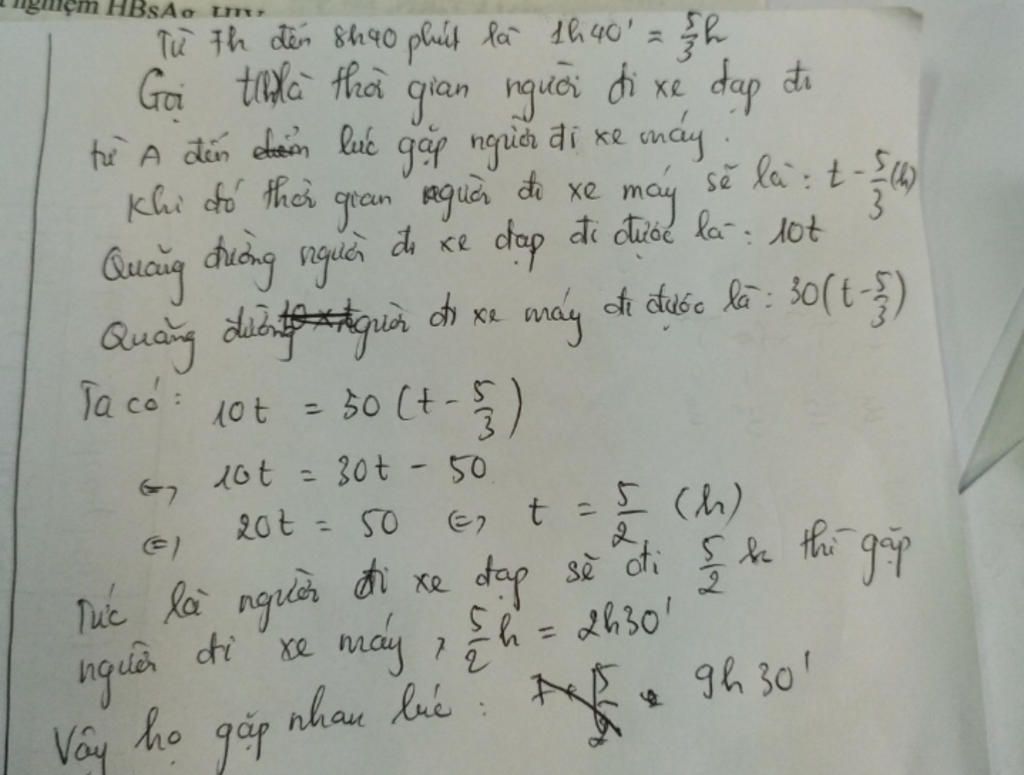 nghiệm HBsAg, HIV
Từ 7h đến 8h40 phút là 1h40' = 5/3 h
Gọi t(h) là thời gian người đi xe đạp đi
từ A đến lúc gặp người đi xe máy.
Khi đó thời gian người đi xe máy sẽ là: t - 5/3 (h)
Quãng đường người đi xe đạp đi được là: 10t
Quãng đường người đi xe máy đi được là: 30(t - 5/3)
Ta có: 10t = 30(t - 5/3)
⇔ 10t = 30t - 50
⇔ 20t = 50 ⇔ t = 5/2 (h)
Tức là người đi xe đạp sẽ đi 5/2 h thì gặp
người đi xe máy, 5/2 h = 2h30'
Vậy họ gặp nhau lúc: 9h30'